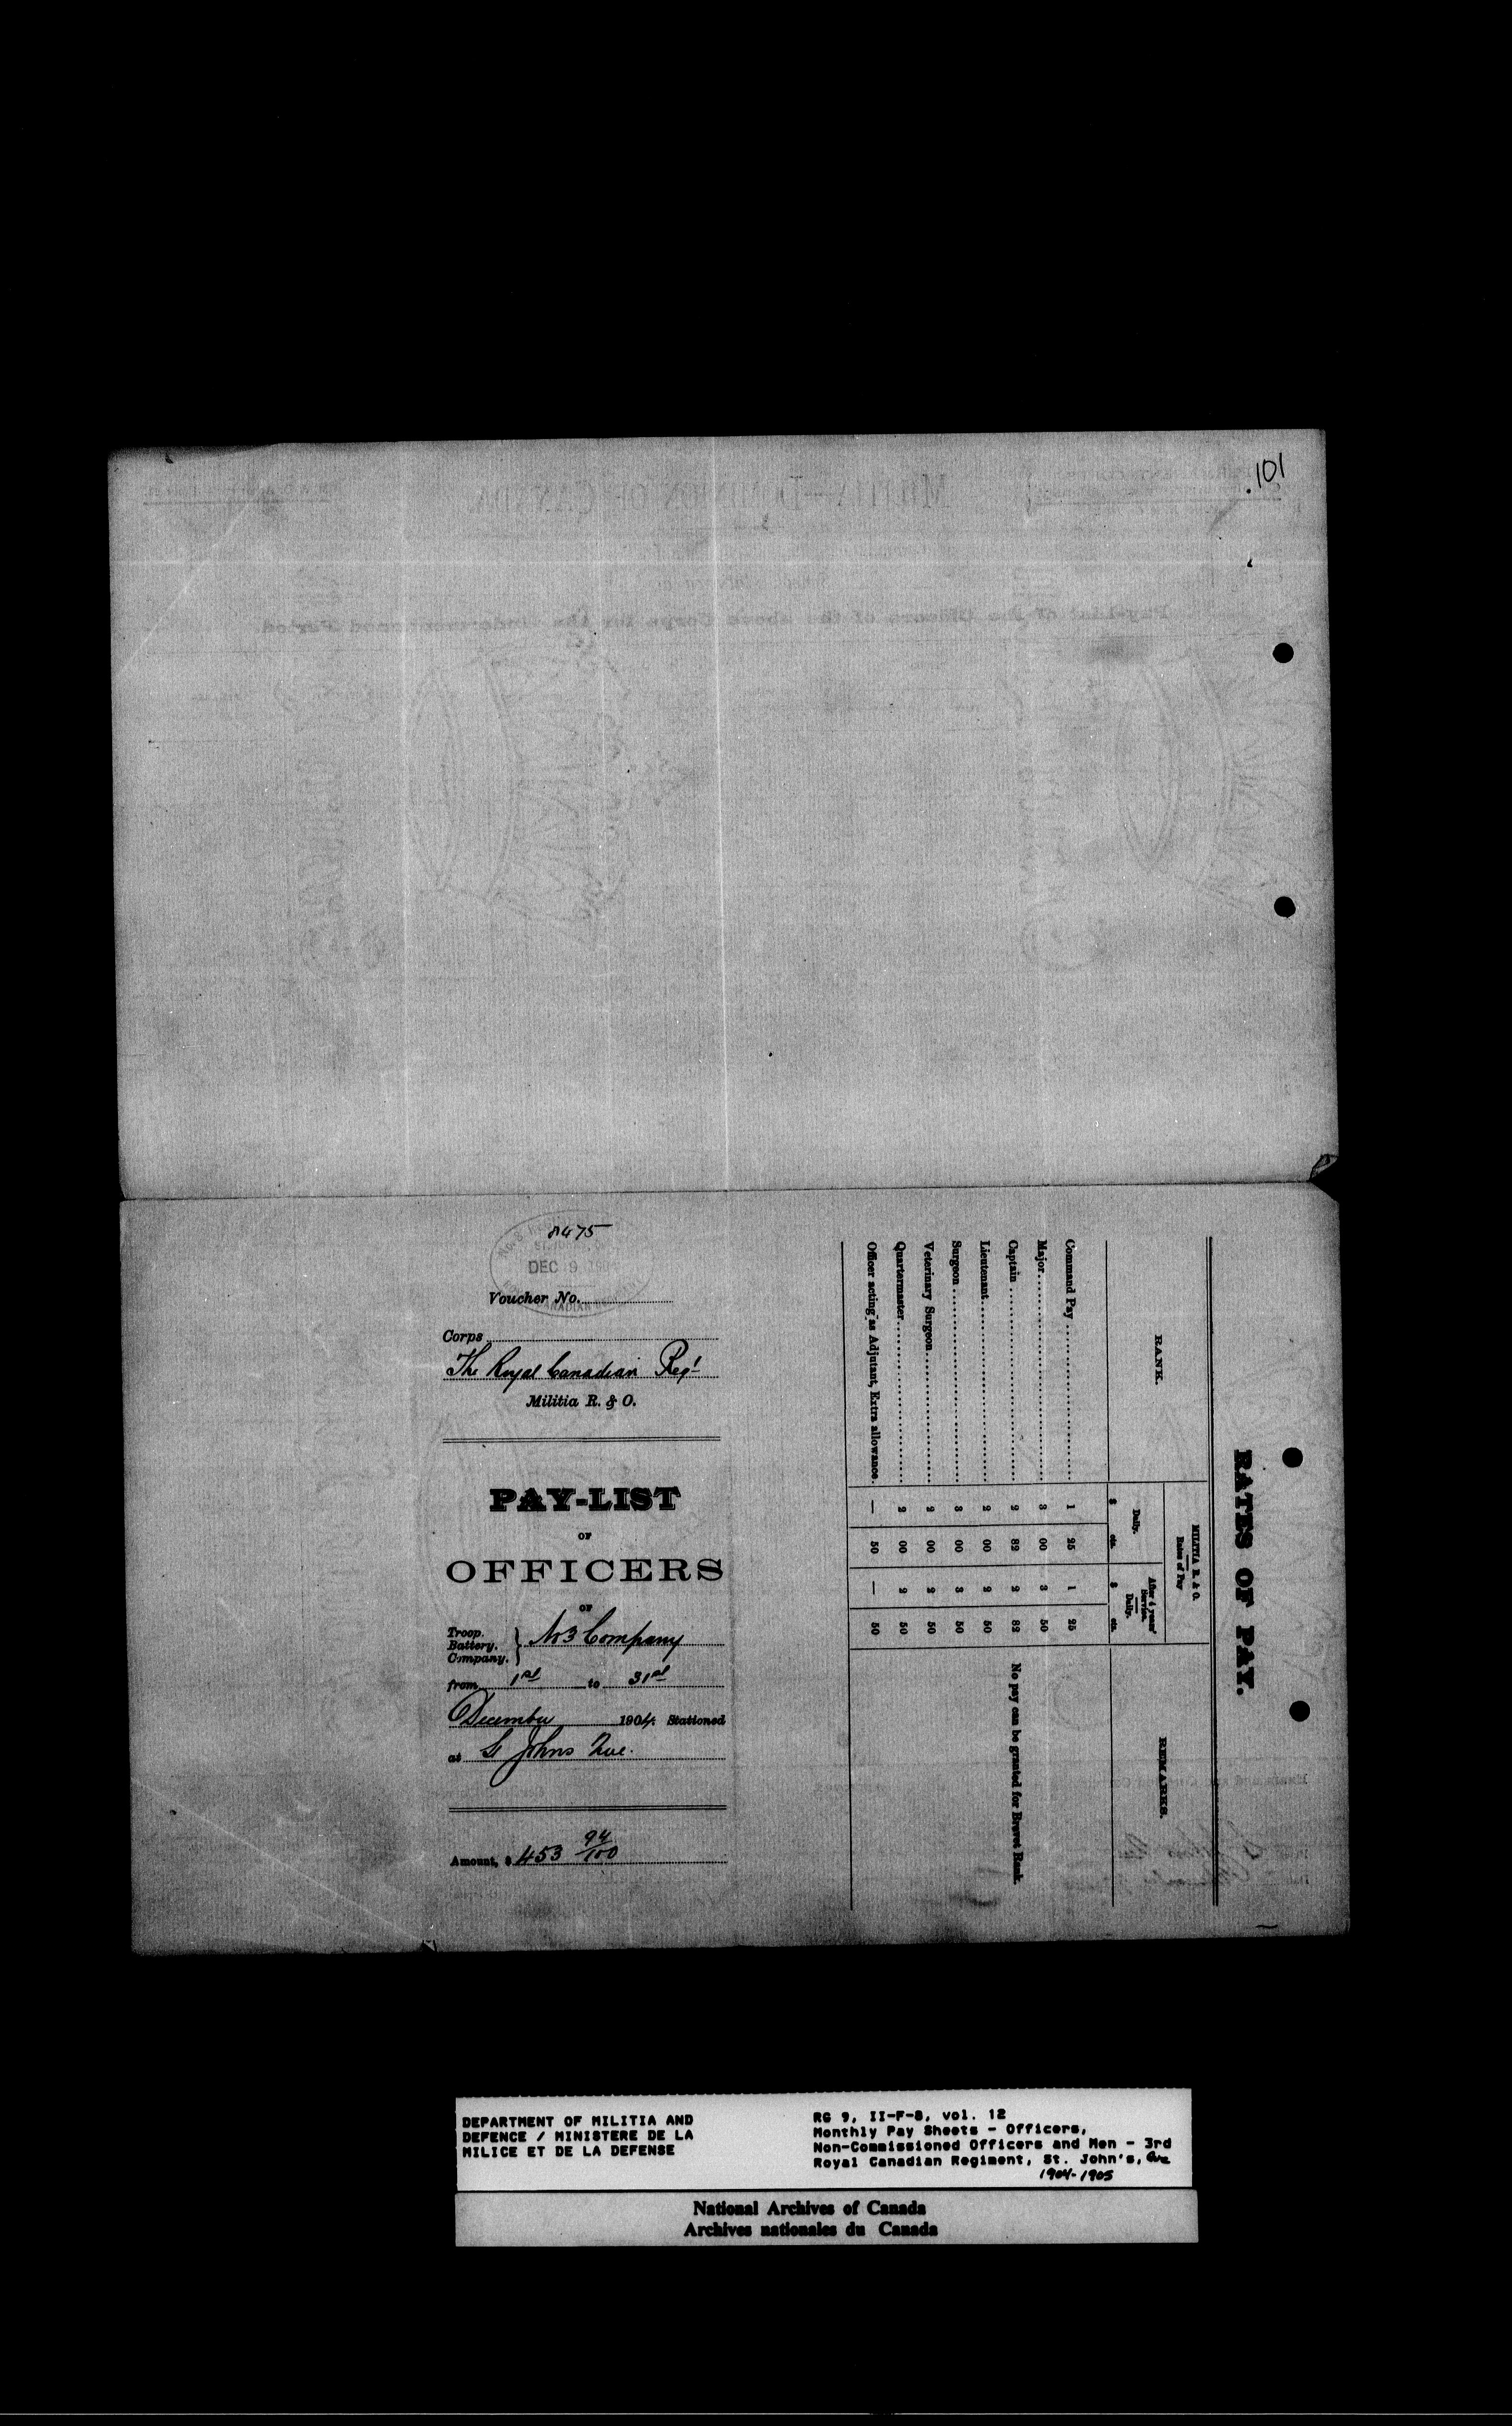 101
8475
DEC 9 1904
Voucher No.
Corps
The Royal Canadian Reg't
Militia R. & O.
PAY-LIST
OF
OFFICERS
OF
Troop.
Battery.
Company. } No 3 Company
from 1st to 31st
December 1904. Stationed
at St Johns Que.
Amount, $ 453 94/100
RATES OF PAY.
RANK.
MILITIA R. & O.
Rates of Pay
REMARKS.
Daily.
After 4 years' Service. Daily.
$ cts. $ cts.
Command Pay 1 25 1 25
Major 3 00 3 50
Captain 2 82 2 82 No pay can be granted for Brevet Rank.
Lieutenant 2 00 2 50
Surgeon 3 00 3 50
Veterinary Surgeon 2 00 2 50
Quartermaster 2 00 2 50
Officer acting as Adjutant, Extra allowance. — 50 — 50
DEPARTMENT OF MILITIA AND
DEFENCE / MINISTERE DE LA
MILICE ET DE LA DEFENSE
RG 9, II-F-8, vol. 12
Monthly Pay Sheets - Officers,
Non-Commissioned Officers and Men - 3rd
Royal Canadian Regiment, St. John's, Que
1904-1905
National Archives of Canada
Archives nationales du Canada